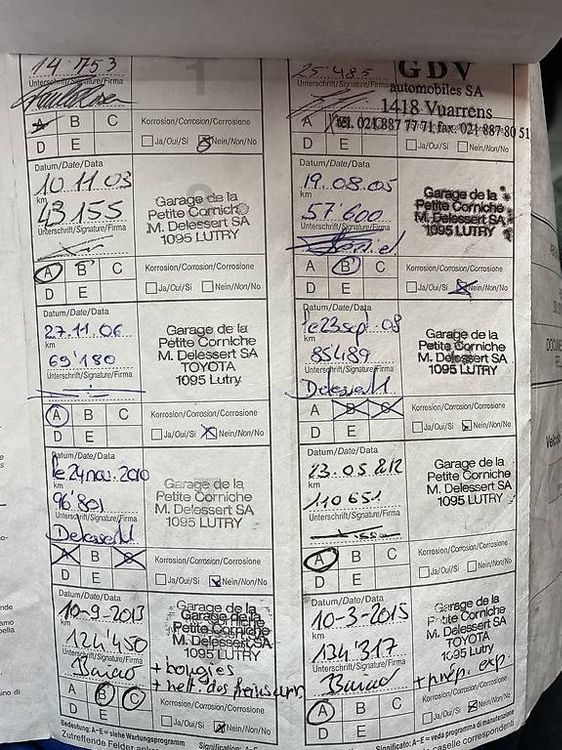 14'753
Unterschrift/Signature/Firma
A B C
D E
Korrosion/Corrosion/Corrosione
Ja/Oui/Si Nein/Non/No
25'485
Unterschrift/Signature/Firma
GDV
automobiles SA
1418 Vuarrens
tél. 021 887 77 71 fax. 021 887 80 51
A
D E
Ja/Oui/Si Nein/Non/No
Datum/Date/Data
10.11.03
km
43155
Unterschrift/Signature/Firma
Garage de la
Petite Corniche
M. Delessert SA
1095 LUTRY
A B C
D E
Korrosion/Corrosion/Corrosione
Ja/Oui/Si Nein/Non/No
Datum/Date/Data
19.08.05
km
57'600
Unterschrift/Signature/Firma
Garage de la
Petite Corniche
M. Delessert SA
1095 LUTRY
A B C
D E
Korrosion/Corrosion/Corrosione
Ja/Oui/Si Nein/Non/No
Datum/Date/Data
27.11.06
km
69'180
Unterschrift/Signature/Firma
Garage de la
Petite Corniche
M. Delessert SA
TOYOTA
1095 Lutry
A B C
D E
Korrosion/Corrosion/Corrosione
Ja/Oui/Si Nein/Non/No
Datum/Date/Data
le 23 sept. 08
km
85'489
Unterschrift/Signature/Firma
Delessert
Garage de la
Petite Corniche
M. Delessert SA
1095 LUTRY
A B C
D E
Korrosion/Corrosion/Corrosione
Ja/Oui/Si Nein/Non/No
Datum/Date/Data
le 24 nov. 2010
km
96'801
Unterschrift/Signature/Firma
Delessert
Garage de la
Petite Corniche
M. Delessert SA
1095 LUTRY
A B C
D E
Korrosion/Corrosion/Corrosione
Ja/Oui/Si Nein/Non/No
Datum/Date/Data
23.05.2012
km
110651
Unterschrift/Signature/Firma
Garage de la
Petite Corniche
M. Delessert SA
1095 LUTRY
A B C
D E
Korrosion/Corrosion/Corrosione
Ja/Oui/Si Nein/Non/No
Datum/Date/Data
10-9-2013
km
124'450
Unterschrift/Signature/Firma
Garage de la
Petite Corniche
M. Delessert SA
1095 LUTRY
+ bougies
+ nett. des freins arr
A B C
D E
Ja/Oui/Si Nein/Non/No
Datum/Date/Data
10-3-2015
km
134'317
Unterschrift/Signature/Firma
Garage de la
Petite Corniche
M. Delessert SA
TOYOTA
1095 LUTRY
+ prép. exp
A B C
D E
Korrosion/Corrosion/Corrosione
Ja/Oui/Si Nein/Non/No
Bedeutung: A–E = siehe Wartungsprogramm
Zutreffende Felder
Signification: A–E =
Significato: A–E = veda programma di manutenzione
caselle corrispondenti